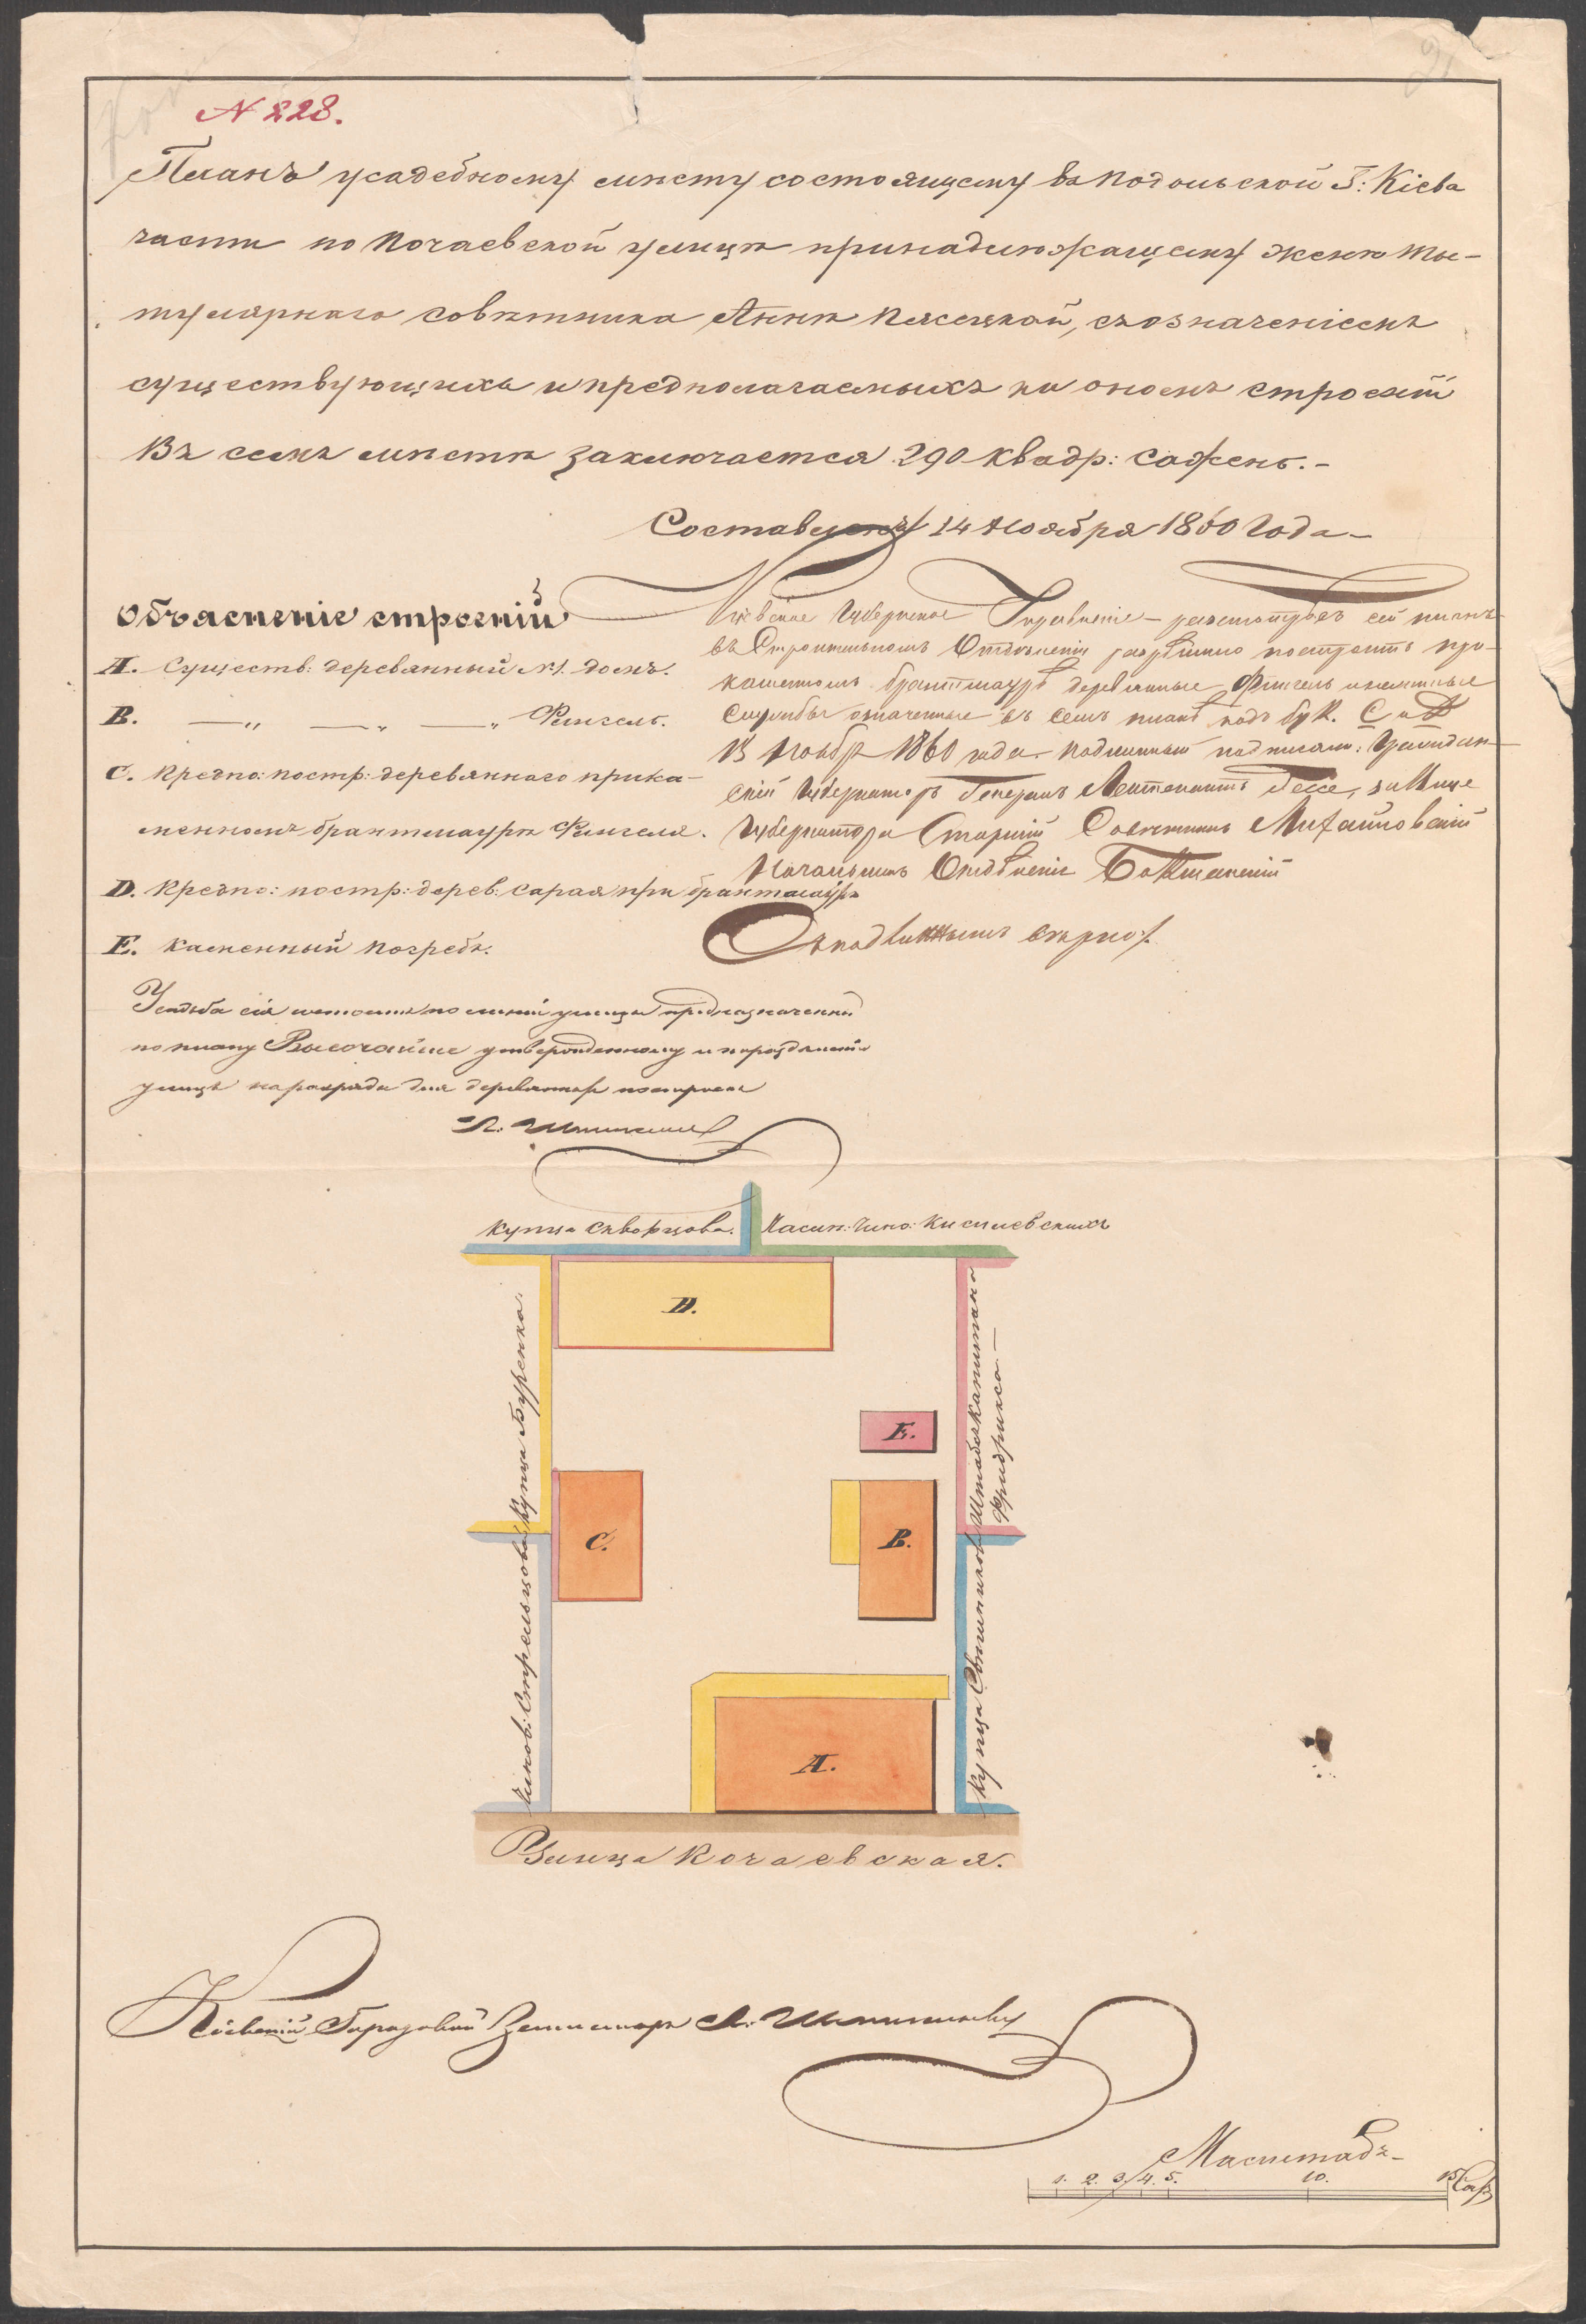 N 228.
Планъ усадебному мѣсту состоящему въ Подольской Г: Кіева
части по Почаевской улицѣ принадлежащему женѣ ты-
тулярнаго совѣтника Аннѣ съ означеніемъ
существующихъ и предполагаемыхъ на ономъ строеній
Въ семъ мѣстѣ заключается 290 квадр: сажень.-
Составленъ 14 Ноября 1860 Года-
Объясненіе строеній
А. Существ: деревянный №1. домъ.
В. —„ —„ —„ Флигель.
С. Предпо: постр: деревяннаго при ка-
менномъ брантмаурѣ Флигеля.
D. Предпо: постр: дерев: сарая при брантмаурѣ
Е. Каменный погребъ.
Кіевское Губернское Правленіе — разсмотрѣвъ сей планъ
въ Строительномъ Отдѣленіи разрѣшило построить при
каменномъ брантмаурѣ деревянные Флигель и
службы означенные въ семъ планѣ подъ бук. С и D
Ноября 1860 года. Подлинный подписали: Граждан-
скій Губернаторъ Генералъ Лейтенантъ Гессе, за Вице
Губернатора Старшій Совѣтникъ Михайловскій
Начальникъ Отдѣленія
Съ подлиннымъ вѣрно:
Усадьба сія состоитъ по линіи улицы предназначенной
по плану Высочайше утвержденному и
улицѣ для деревянныхъ построекъ
Купца Скворцова. Чино: Киселевскихъ
D.
Купца Бугаенка.
Чинов: Стрельцова
Штабскапитана
Фридрикса.—
Купца Свѣшникова
E.
C.
B.
A.
Улица Почаевская.
Кіевскій Городовой Землемѣръ
Масштабъ
1. 2. 3. 4. 5. 10. 15 Саж